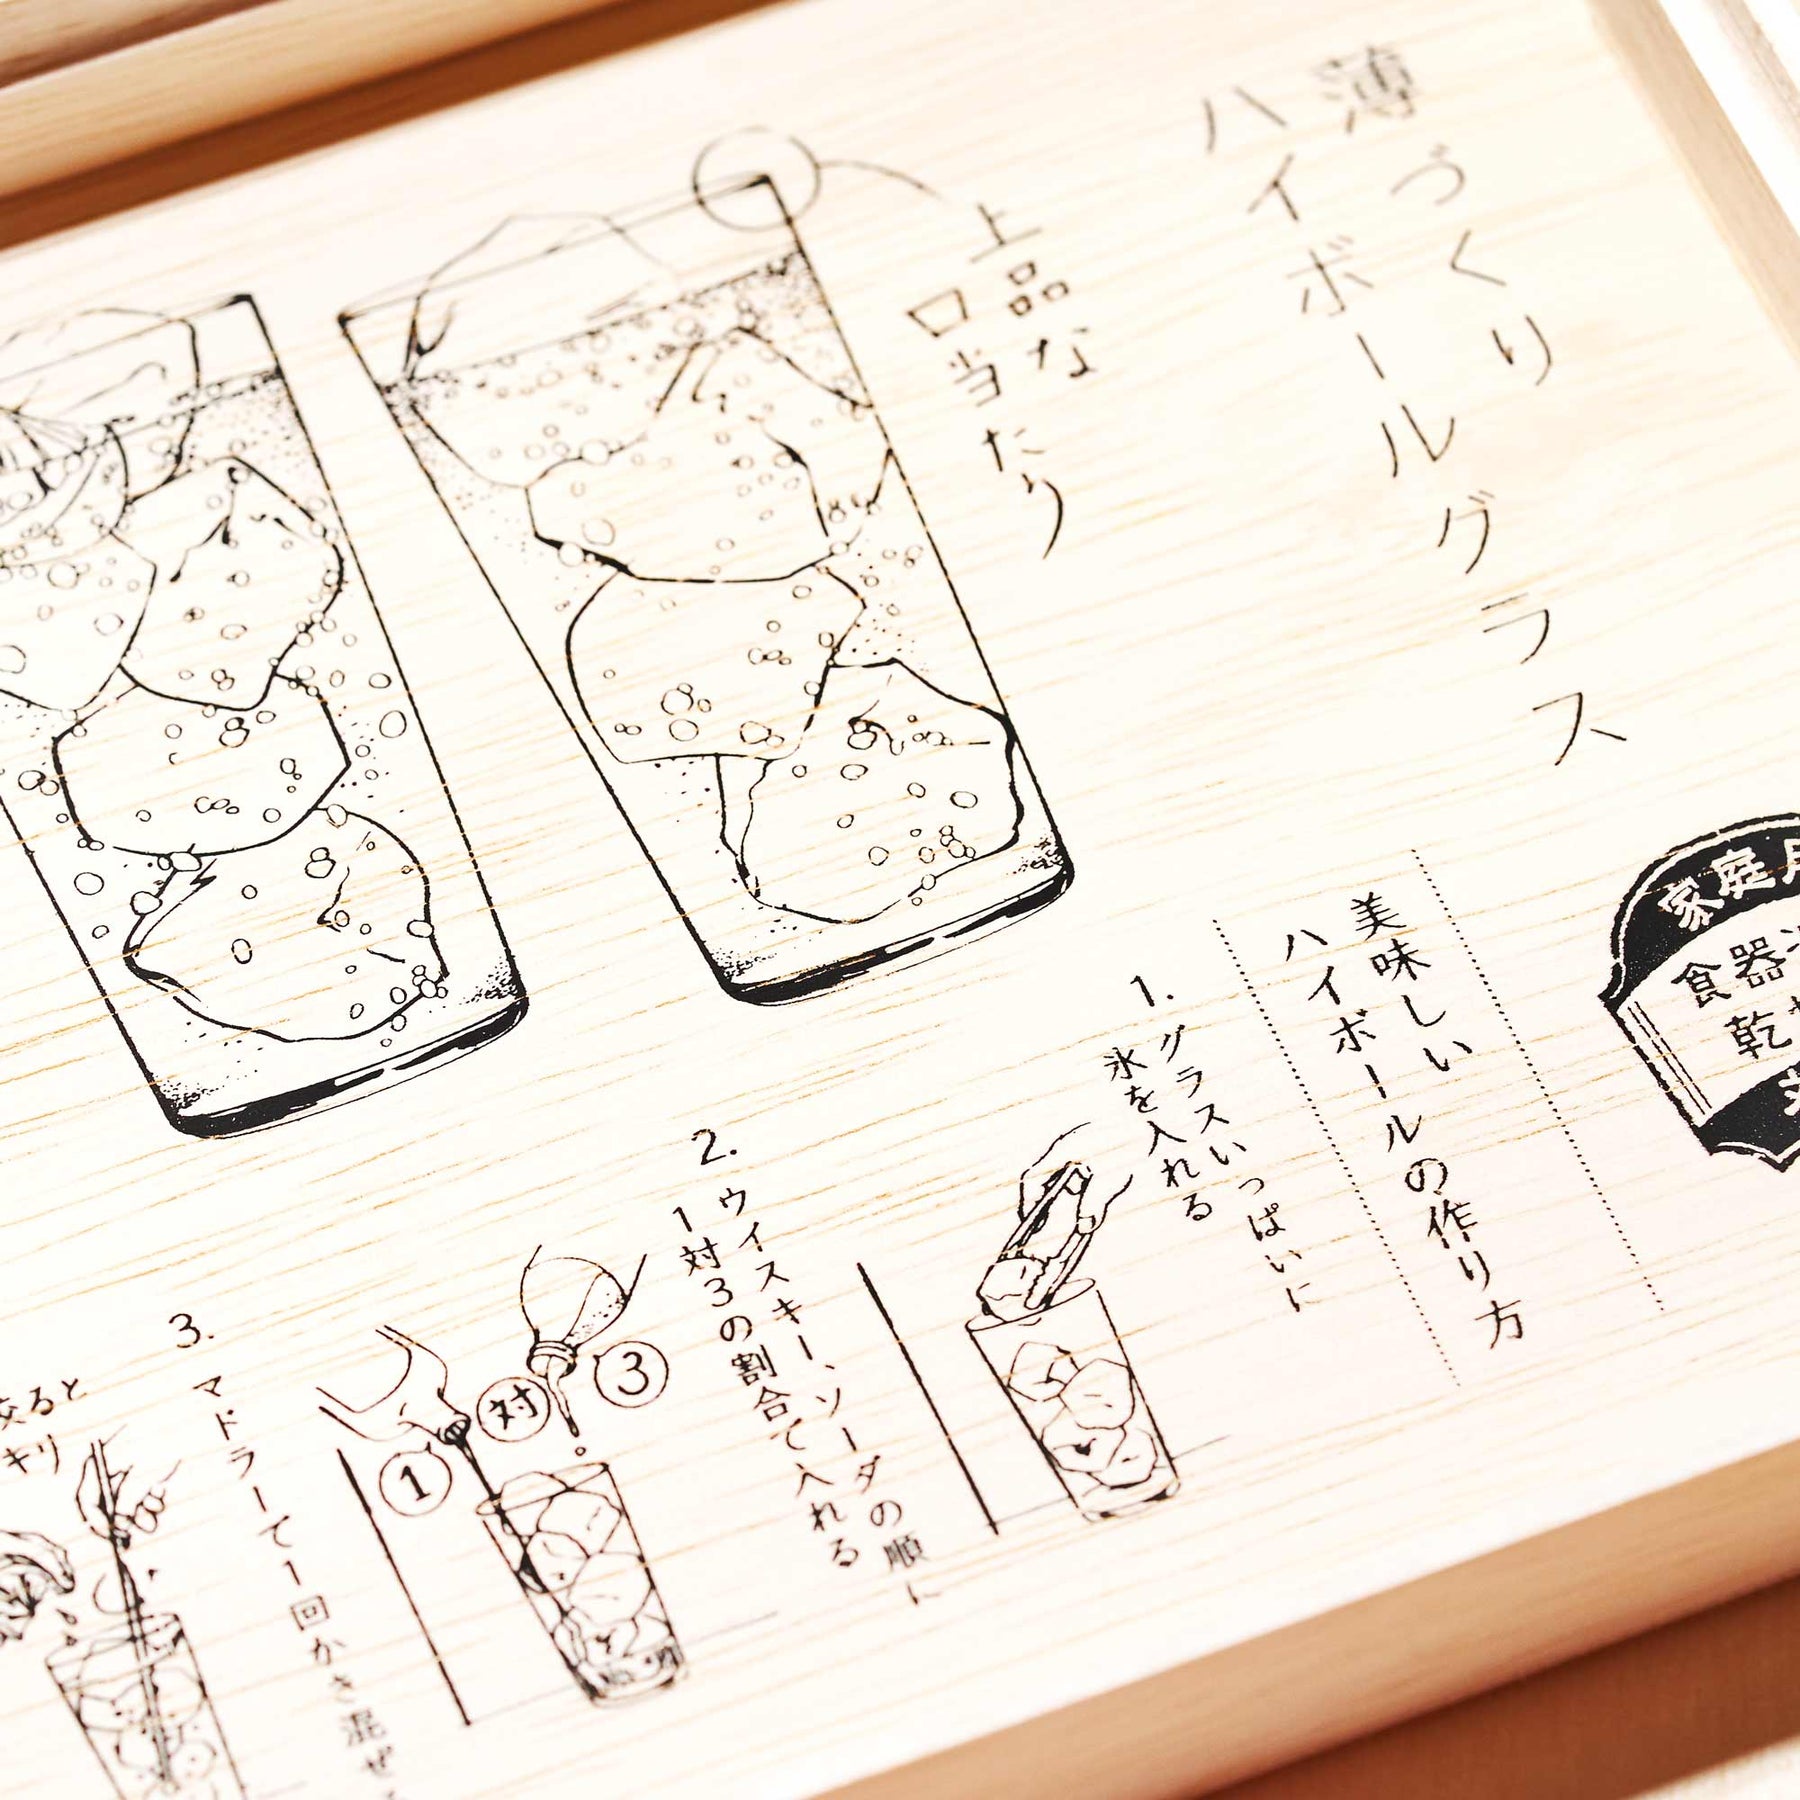 薄づくり
ハイボールグラス
上品な
口当たり
家庭用
食器
美味しい
ハイボールの作り方
1.
グラスいっぱいに
氷を入れる
2.
ウイスキー、ソーダの順に
1対3の割合で入れる
③
対
①
3.
マドラーで1回かき混ぜ
ると
キリ